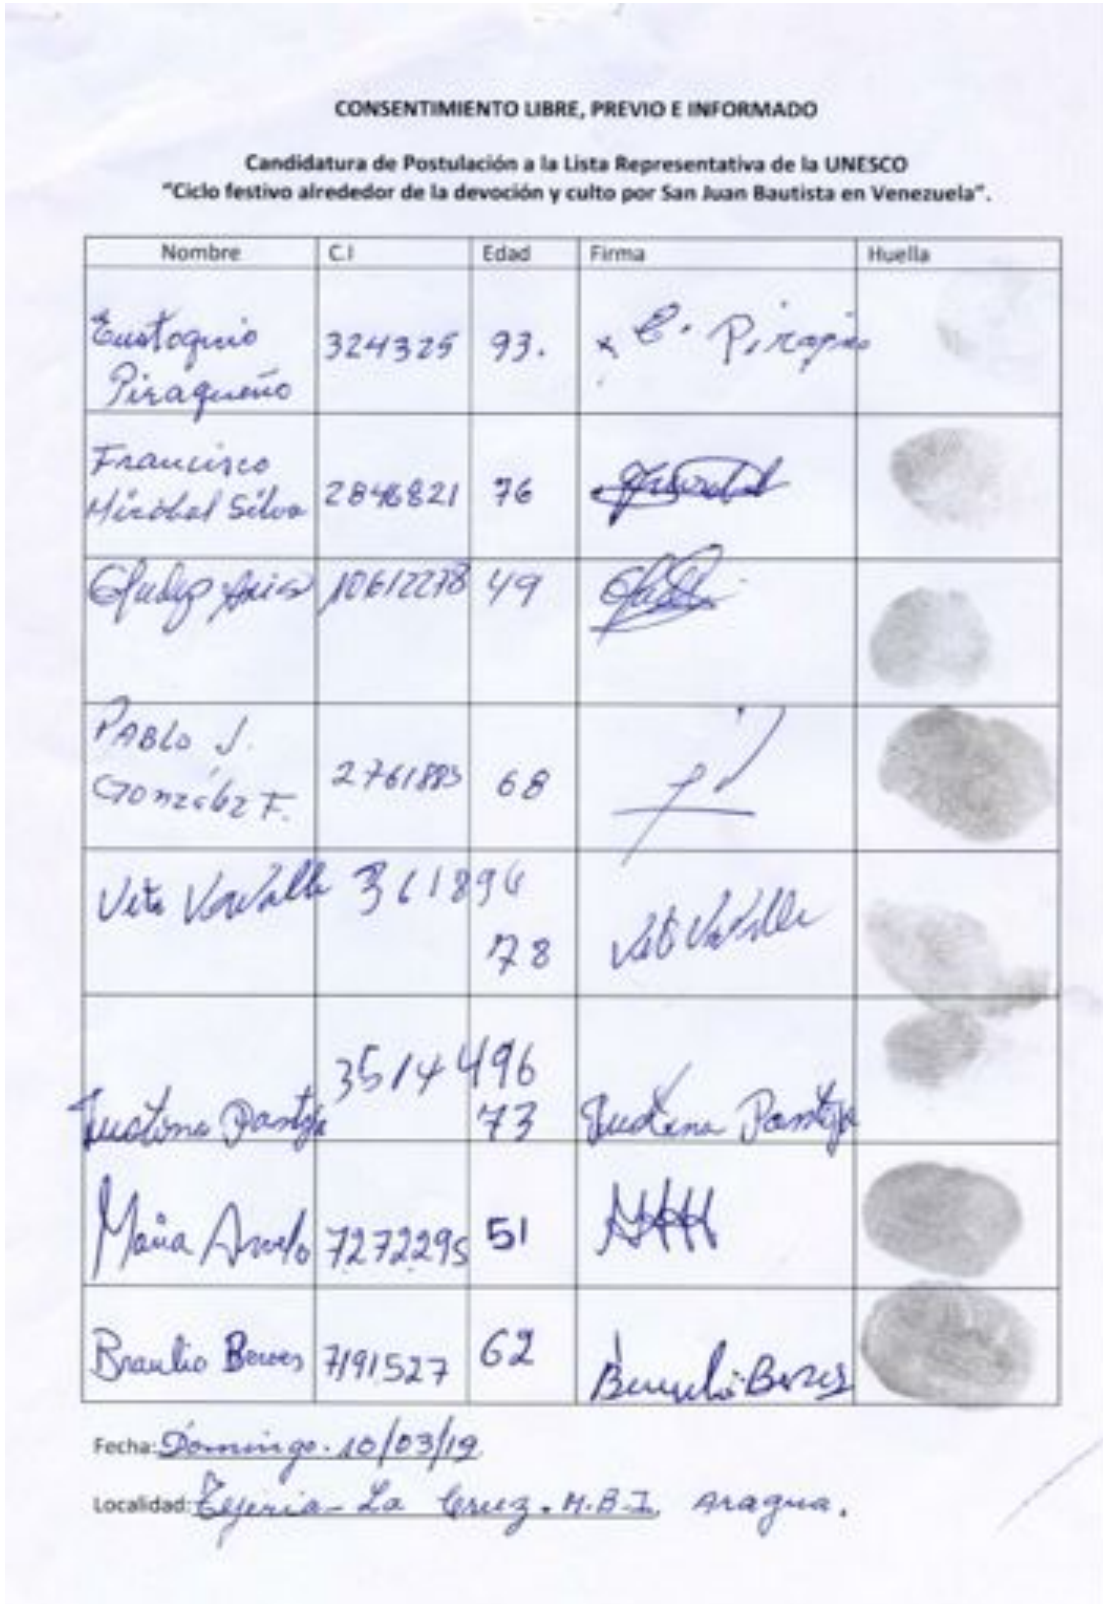 CONSENTIMIENTO LIBRE, PREVIO E INFORMADO
Candidatura de Postulación a la Lista Representativa de la UNESCO
"Ciclo festivo alrededor de la devoción y culto por San Juan Bautista en Venezuela".
Nombre C.I Edad Firma Huella
Eustoquio
Piragueño
324325 93.
Francisco
Mirabal Silva
2846821 76
10612278 49
PABLO J.
González F.
2761885 68
Vito 361896
78
3514496
Pantoja 73 Pantoja
Maria Arvelo 7272295 51
Braulio 7191527 62
Fecha: Domingo. 10/03/19
Localidad: Tejeria - La Cruz. M.B.I. Aragua.